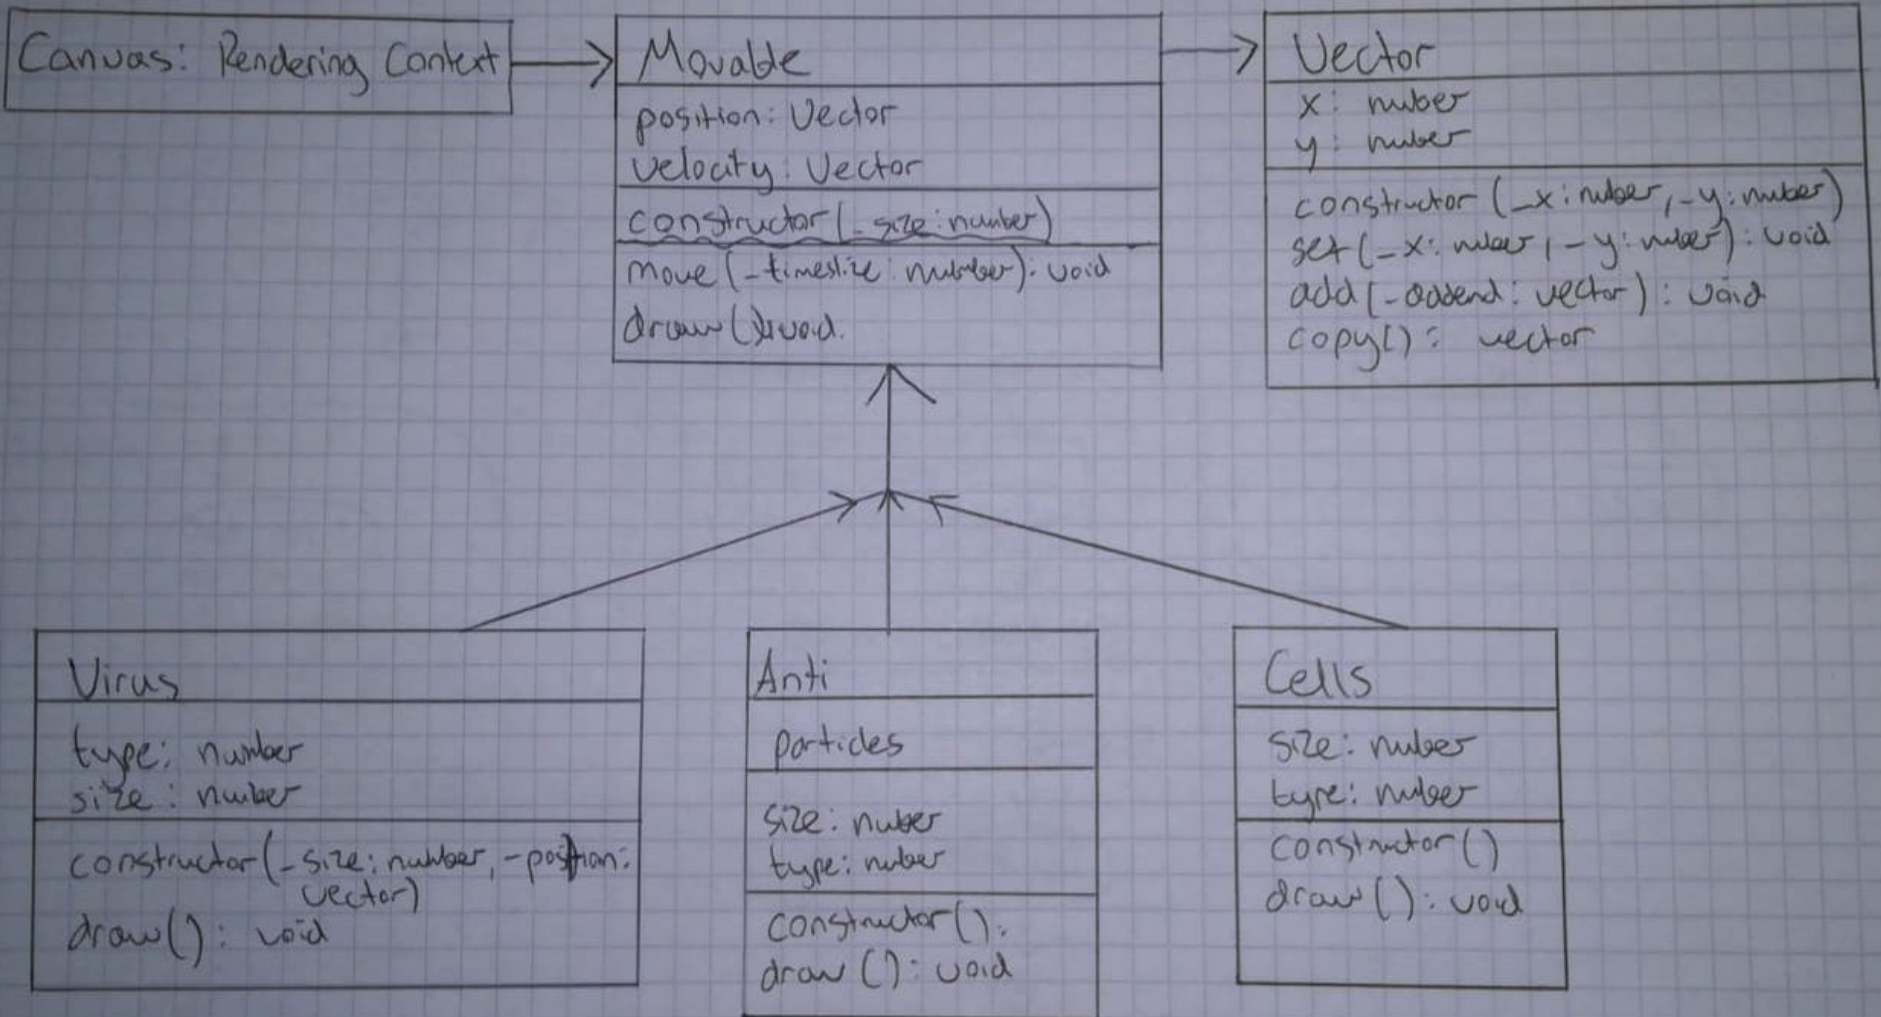 Canvas: Rendering Context
Movable
position: Vector
velocity: Vector
constructor(_size: number)
move(_timeslize: number): void
draw(): void.
Vector
x: nuber
y: nuber
constructor (_x: nuber, _y: nuber)
set(_x: nuber, _y: nuber): void
add(_addend: vector): void
copy(): vector
Virus
type: number
size: nuber
constructor(_size: number, _position:
vector)
draw(): void
Anti
particles
size: nuber
type: nuber
constructor():
draw (): void
Cells
size: nuber
type: nuber
constructor()
draw(): void